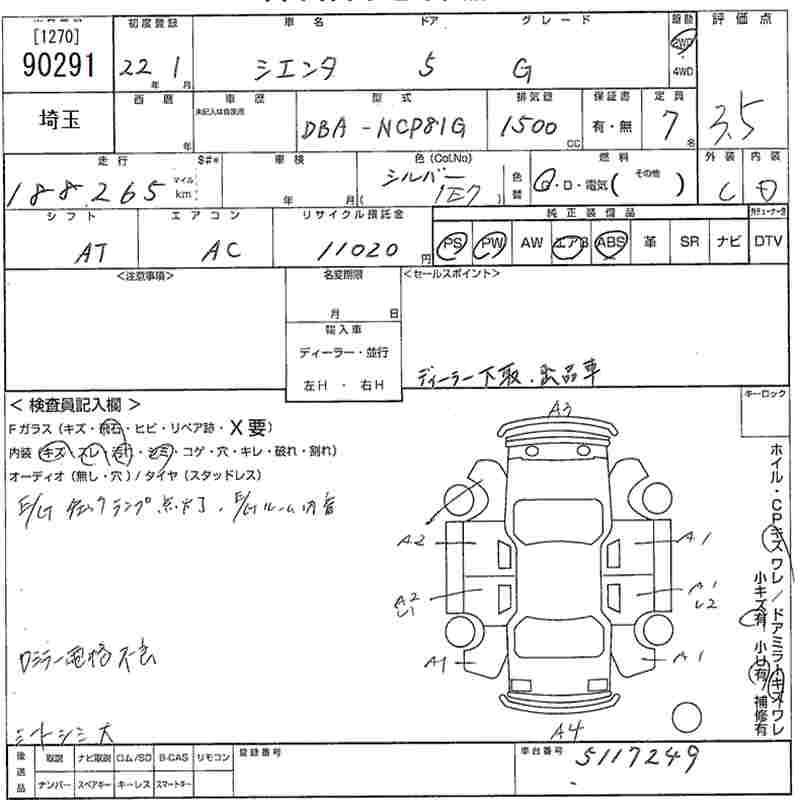 [1270]
90291
初度登録
22年 1月
車名
シエンタ
ドア
5
グレード
G
駆動
2WD
4WD
評価点
3.5
埼玉
西暦
年
車歴
未記入は自家用
型式
DBA-NCP81G
排気量
1500cc
保証書
有・無
定員
7名
走行
188,265
マイル
km
S#*
車検
年 月
色(Col.No)
シルバー
(1E7)
色替
燃料
G・D・電気( その他 )
外装
C
内装
D
シフト
AT
エアコン
AC
リサイクル預託金
11020円
純正装備品
PS PW AW エアB ABS 革 SR ナビ
DTV
<注意事項>
名変期限
月 日
輸入車
ディーラー・並行
左H・右H
<セールスポイント>
ディーラー下取、出品車
<検査員記入欄>
Fガラス(キズ・飛石・ヒビ・リペア跡・X要)
内装(キズ・スレ・汚れ・シミ・コゲ・穴・キレ・破れ・割れ)
オーディオ(無し・穴)/タイヤ(スタッドレス)
E/Gチェックランプ点灯、E/Gルーム内音
ロミラー電格不良
シートシミ大
キーロック
ホイル・CPキズ ワレ/ドアミラーキズ ワレ
小キズ有 小U有 補修有
A3
A2
A1
A2
L1
A1
L2
A1
A1
A4
後送品
取説 ナビ取説 ロム/SD B-CAS リモコン
ナンバー スペアキー キーレス スマートキー
登録番号
車台番号
5117249